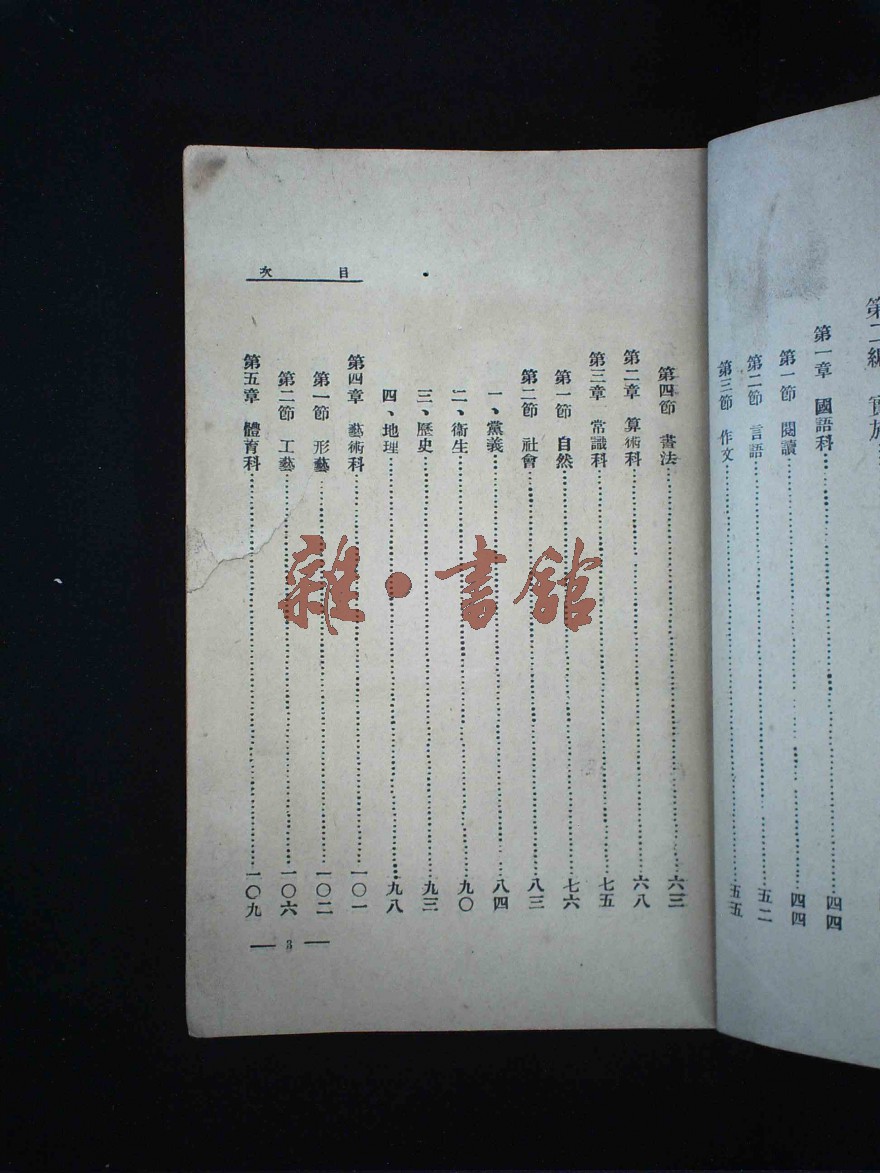 第二編
第一章 國語科……四四
第一節 閱讀……四四
第二節 言語……五二
第三節 作文……五五
目次
第四節 書法……六三
第二章 算術科……六八
第三章 常識科……七五
第一節 自然……七六
第二節 社會……八三
一、黨義……八四
二、衛生……九〇
三、歷史……九三
四、地理……九八
第四章 藝術科……一〇一
第一節 形藝……一〇二
第二節 工藝……一〇六
第五章 體育科……一〇九
— 3 —
雜·書館